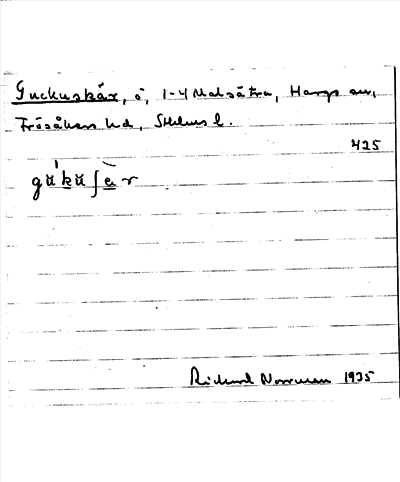 Guckuskär, ö, 1-4 Malsätra, Hargs sn,
Frösåkers hd, Sthlms l.
425
gu̇́kuʃɛ̀r
Richard Norrman 1935